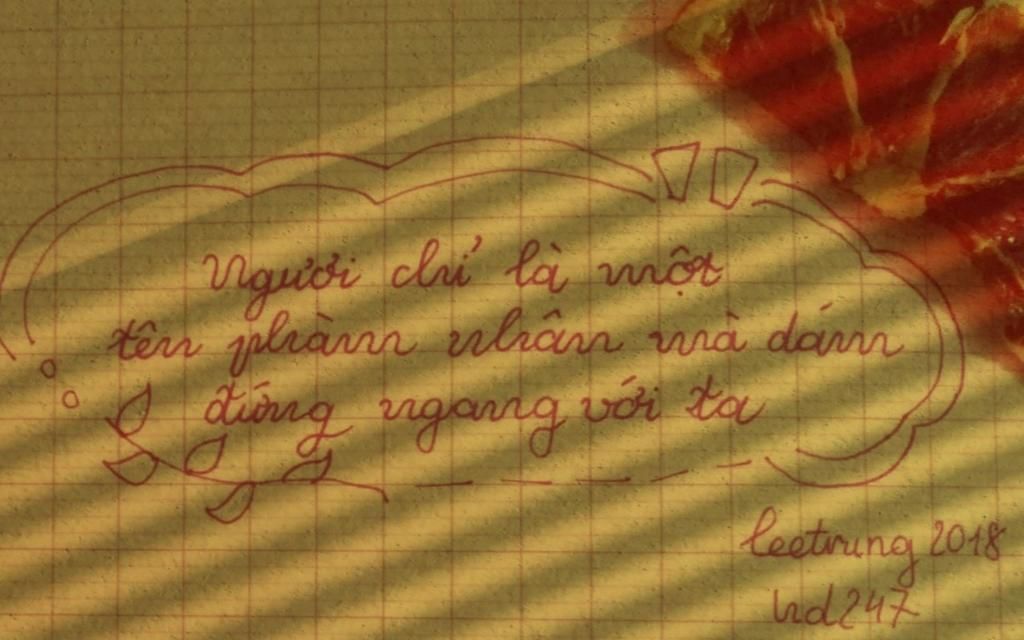 Ngươi chỉ là một
tên phàm nhân mà dám
đứng ngang với ta
leetrung 2018
hd247